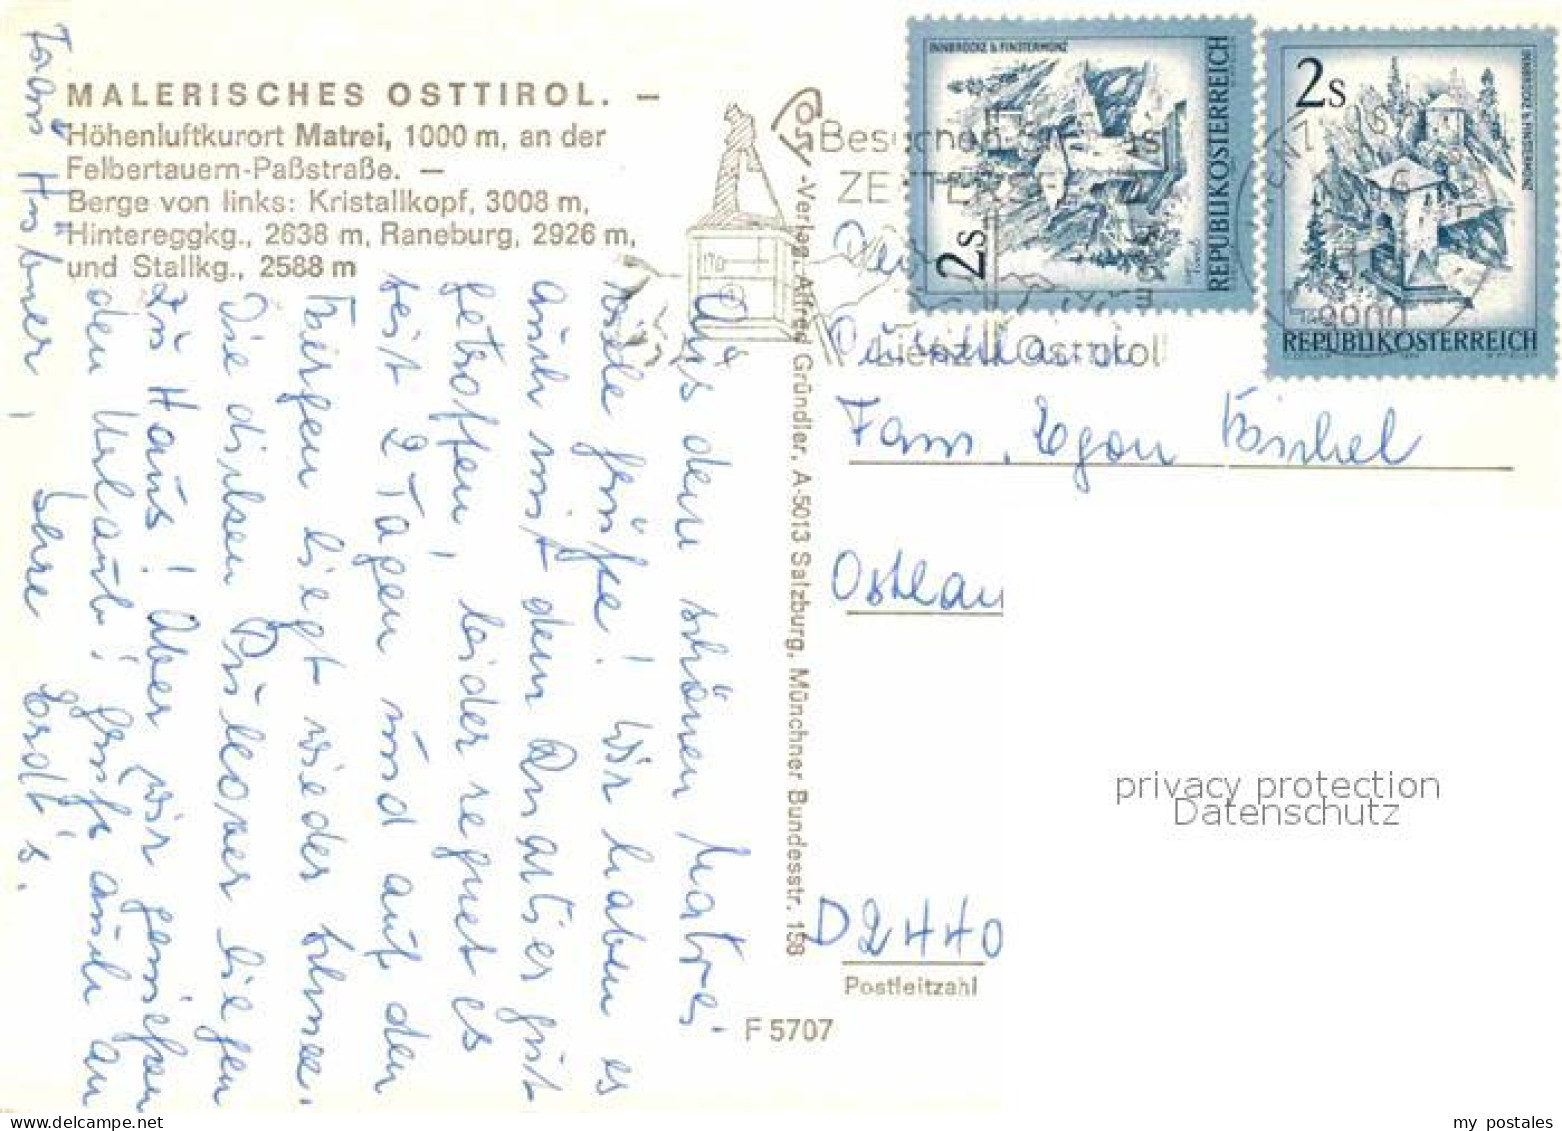 MALERISCHES OSTTIROL. —
Höhenluftkurort Matrei, 1000 m, an der
Felbertauern-Paßstraße. —
Berge von links: Kristallkopf, 3008 m,
Hintereggkg., 2638 m, Raneburg, 2926 m,
und Stallkg., 2588 m
Aus dem schönen Matrei
viele Grüße! Wir haben es
auch mit dem Quartier gut
getroffen, leider regnet es
seit 2 Tagen und auf den
Bergen liegt wieder Schnee.
Die dicken Pullover liegen
zu Haus! Aber wir genießen
den Urlaub! Gruß auch an
Hübner,
Cosy-Verlag Alfred Gründler, A-5013 Salzburg, Münchner Bundesstr. 158
F 5707
INNBRÜCKE b. FINSTERMÜNZ
2s
REPUBLIK ÖSTERREICH
INNBRÜCKE b. FINSTERMÜNZ
2s
REPUBLIK ÖSTERREICH
Besuchen Sie uns
Lienz Osttirol
9900
Fam. Egon
D 2440
Postleitzahl
privacy protection
Datenschutz
my postales